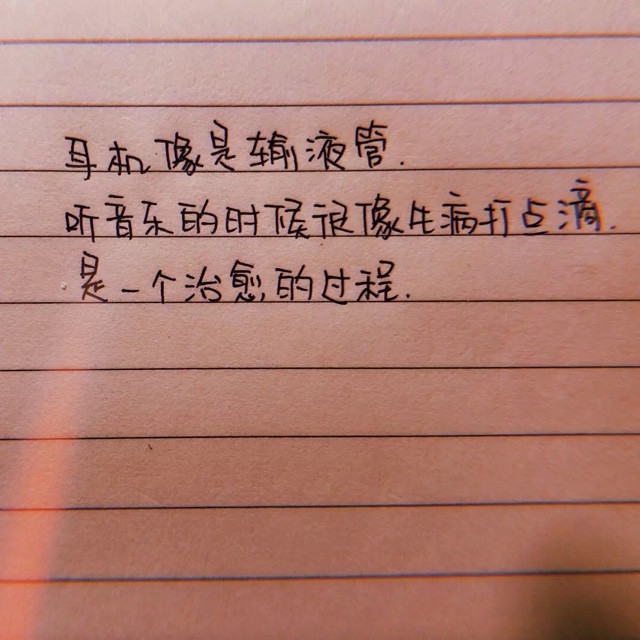 耳机像是输液管.
听音乐的时候很像生病打点滴.
是一个治愈的过程.